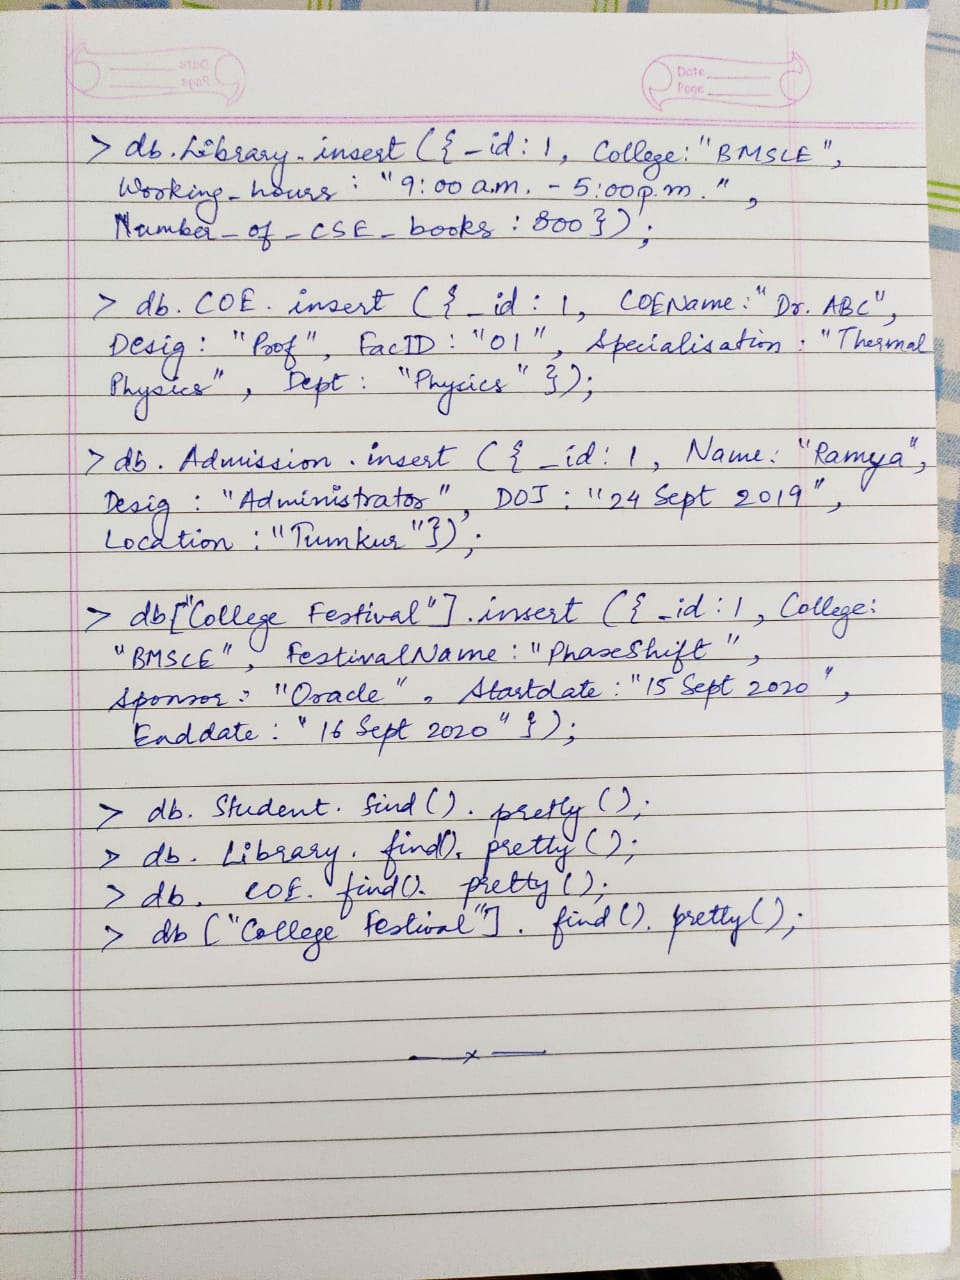 Date
Page
> db.Library.insert ({_id: 1, College: "BMSCE",
Working_hours : "9:00 a.m. - 5:00p.m.",
Number_of_CSE_books : 800});
> db. COE. insert ({_id : 1, COEName : "Dr. ABC",
Desig : "Prof", FacID : "01", Specialisation : "Thermal
Physics", Dept : "Physics" });
> db. Admission . insert ({_id: 1, Name: "Ramya",
Desig : "Administrator", DOJ : "24 Sept 2019",
Location : "Tumkur"});
> db["College Festival"].insert ({_id : 1, College:
"BMSCE", FestivalName : "PhaseShift",
Sponsor : "Oracle", Startdate : "15 Sept 2020",
Enddate : "16 Sept 2020" });
> db. Student. find(). pretty ();
> db. Library. find(). pretty ();
> db. COE. find(). pretty ();
> db ["College Festival"]. find (). pretty();